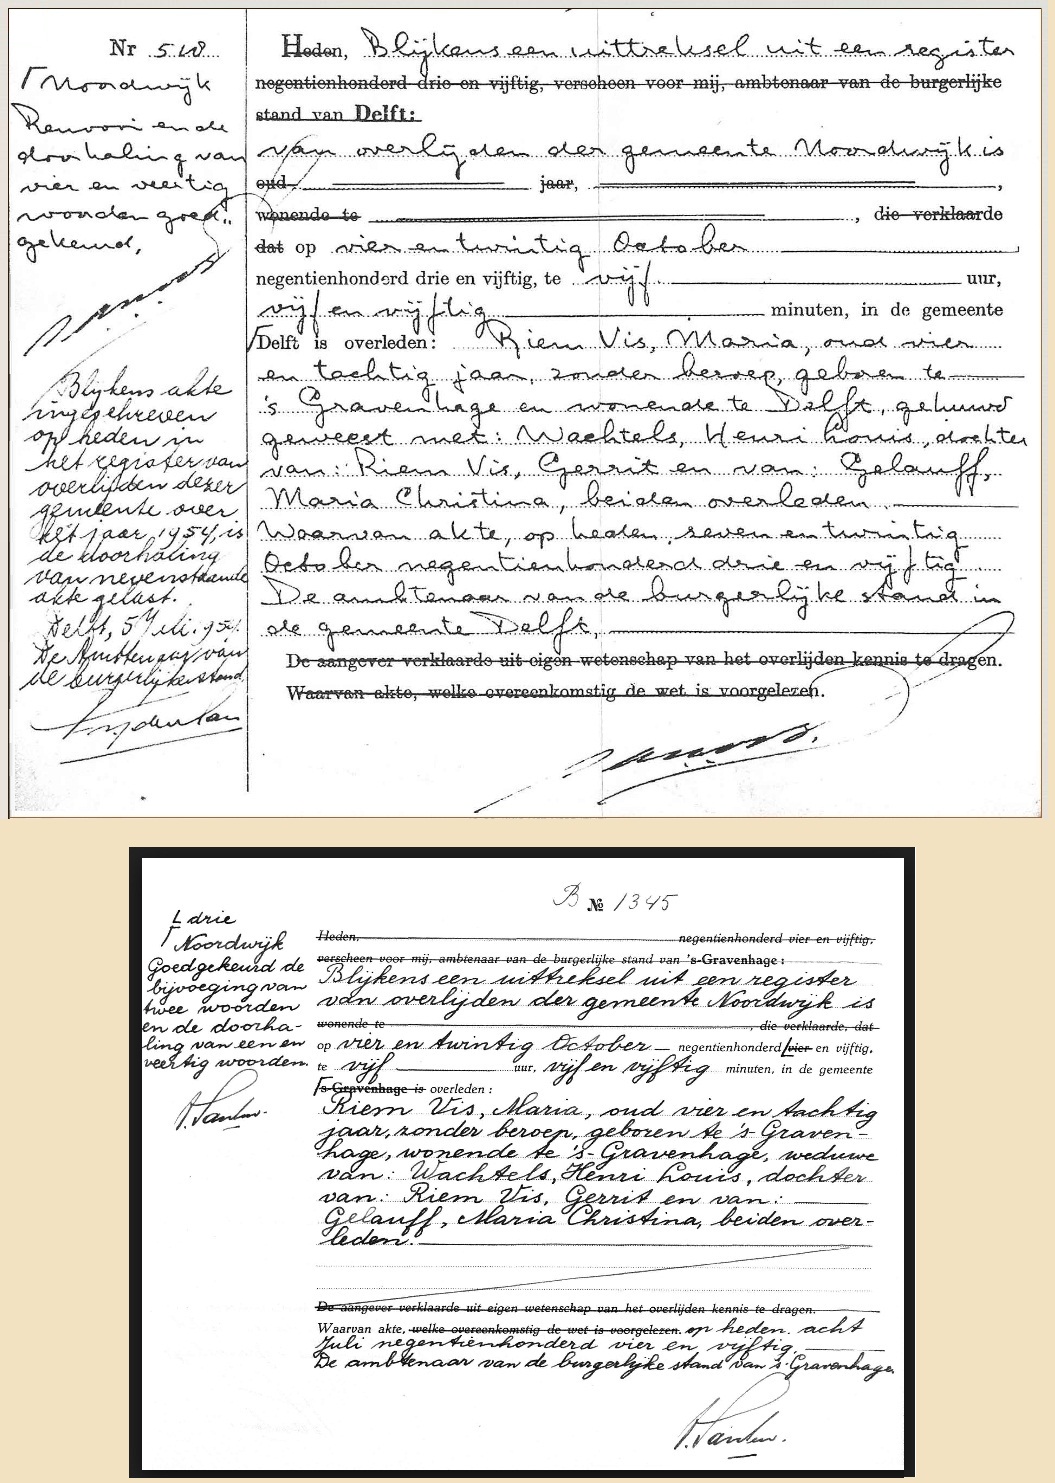 Nr 510
Noordwijk
Renvooi en de
doorhaling van
vier en veertig
woorden goed„
gekeurd,
Blijkens akte
ingeschreven
op heden in
het register van
overlijden dezer
gemeente over
het jaar 1954, is
de doorhaling
van nevenstaande
akte gelast.
Delft, 5 Juli 1954.
De Ambtenaar van
de burgerlijke stand
Heden, Blijkens een uittreksel uit een register
negentienhonderd drie en vijftig, verscheen voor mij, ambtenaar van de burgerlijke
stand van Delft:
van overlijden der gemeente Noordwijk is
oud jaar,
wonende te , die verklaarde
dat op vier en twintig October
negentienhonderd drie en vijftig, te vijf uur,
vijf en vijftig minuten, in de gemeente
Delft is overleden: Riem Vis, Maria, oud vier
en tachtig jaar, zonder beroep, geboren te
's Gravenhage en wonende te Delft, gehuwd
geweest met: Wachtels, Henri Louis, dochter
van: Riem Vis, Gerrit en van: Gelauff,
Maria Christina, beiden overleden.
Waarvan akte, op heden, zeven en twintig
October negentienhonderd drie en vijftig
De ambtenaar van de burgerlijke stand in
de gemeente Delft,
De aangever verklaarde uit eigen wetenschap van het overlijden kennis te dragen.
Waarvan akte, welke overeenkomstig de wet is voorgelezen.
B № 1345
drie
Noordwijk
Goedgekeurd de
bijvoeging van
twee woorden
en de doorha-
ling van een en
veertig woorden.
Heden, negentienhonderd vier en vijftig,
verscheen voor mij, ambtenaar van de burgerlijke stand van 's-Gravenhage:
Blijkens een uittreksel uit een register
van overlijden der gemeente Noordwijk is
wonende te , die verklaarde, dat
op vier en twintig October negentienhonderd vier en vijftig,
te vijf uur, vijf en vijftig minuten, in de gemeente
's-Gravenhage is overleden:
Riem Vis, Maria, oud vier en tachtig
jaar, zonder beroep, geboren te 's-Graven-
hage, wonende te 's-Gravenhage, weduwe
van: Wachtels, Henri Louis, dochter
van: Riem Vis, Gerrit en van:
Gelauff, Maria Christina, beiden over-
leden.
De aangever verklaarde uit eigen wetenschap van het overlijden kennis te dragen.
Waarvan akte, welke overeenkomstig de wet is voorgelezen. op heden acht
Juli negentienhonderd vier en vijftig.
De ambtenaar van de burgerlijke stand van 's-Gravenhage,